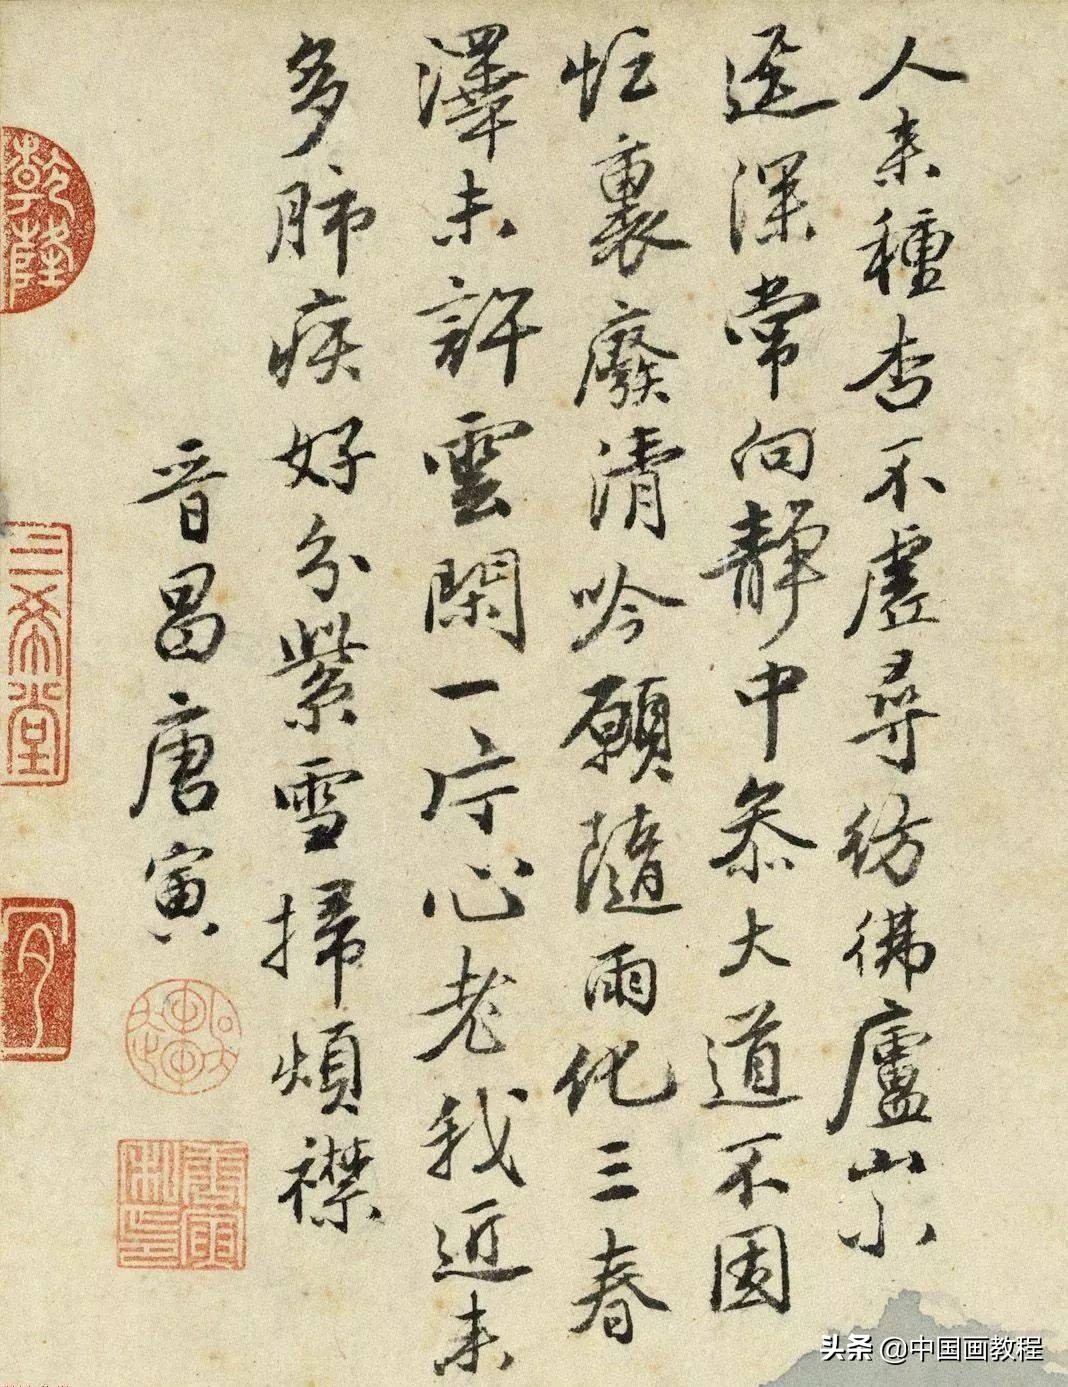 人来種杏不虛尋彷彿廬山小
逕深常向靜中參大道不因
忙裏廢清吟願隨雨化三春
澤未許雲閑一片心老我近来
多肺疾好分紫雪掃煩襟
晋昌唐寅
乾隆
三希堂
頭条 @中国画教程